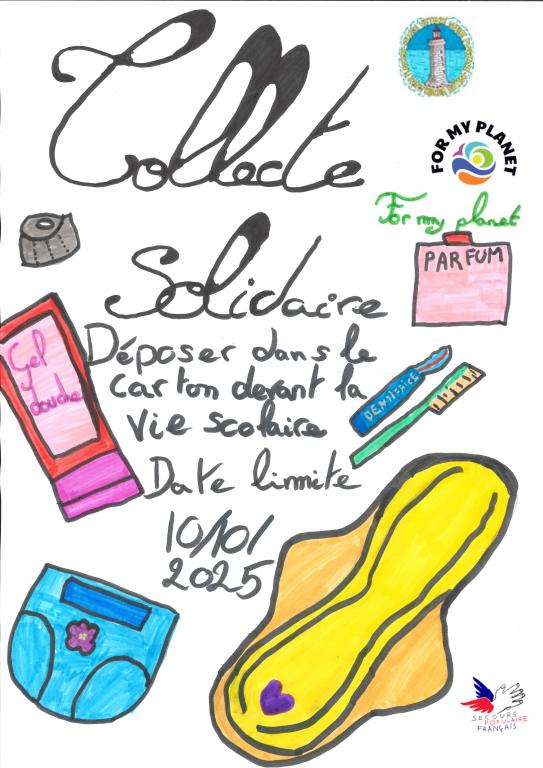 Collecte
FOR MY PLANET
For my planet
Solidaire
PARFUM
Gel
douche
Déposer dans le
carton devant la
vie scolaire
DENTIFRICE
Date limite
10/10/
2025
SECOURS
POPULAIRE
FRANÇAIS